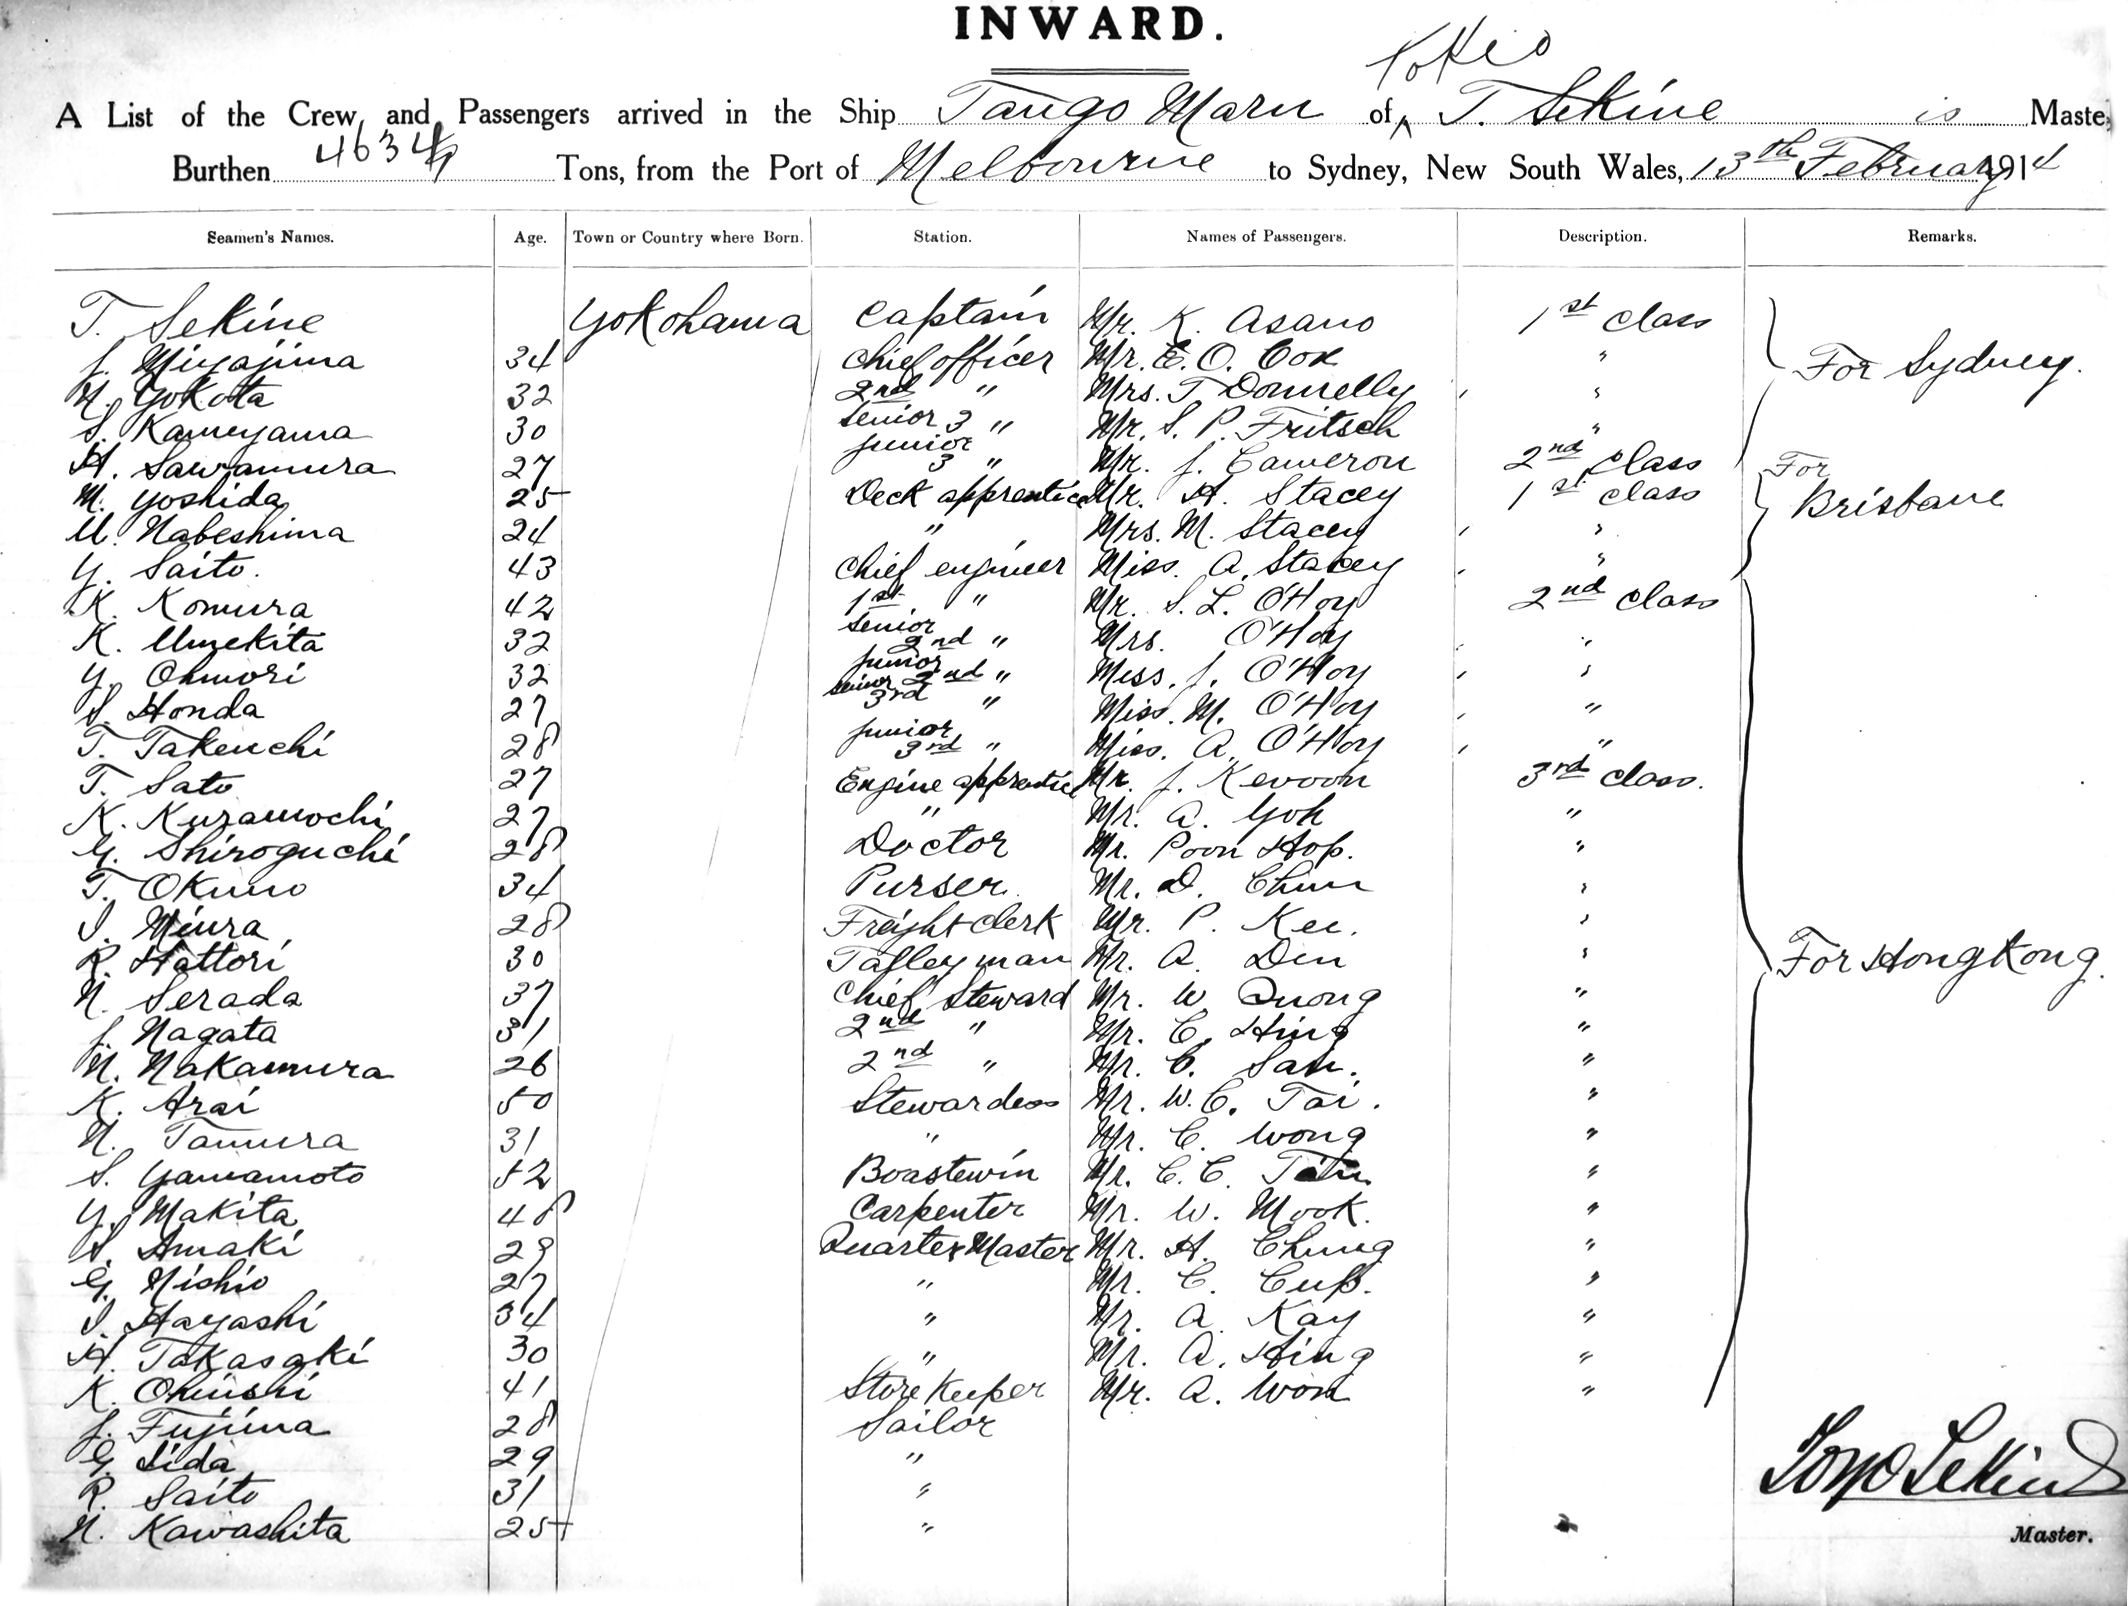 INWARD.
Tokio
A List of the Crew and Passengers arrived in the Ship Tango Maru of T. Sekine is Master,
Burthen 4634 Tons, from the Port of Melbourne to Sydney, New South Wales, 13th February 1914
Seamen's Names. Age. Town or Country where Born. Station. Names of Passengers. Description. Remarks.
T. Sekine Yokohama Captain Mr. K. Asano 1st class
J. Miyajima 34 Chief officer Mr. E. O. Cox " For Sydney.
N. Yokota 32 2nd " Mrs. T. Donnelly "
S. Kameyama 30 Senior 3 " Mr. S. P. Fritsch "
H. Sawamura 27 junior 3 " Mr. J. Cameron 2nd class For
M. Yoshida 25 Deck apprentice Mr. H. Stacey 1st class Brisbane
U. Nabeshima 24 " Mrs. M. Stacey "
Y. Saito. 43 Chief engineer Miss. A. Stacey "
K. Komura 42 1st " Mr. S. L. O'Hoy 2nd class
K. Umekita 32 Senior 2nd " Mrs. O'Hoy "
Y. Ohmori 32 junior 2nd " Miss. J. O'Hoy "
S. Honda 27 senior 3rd " Miss. M. O'Hoy "
T. Takeuchi 28 junior 3rd " Miss. A. O'Hoy "
T. Sato 27 Engine apprentice Mr. J. Kevoon 3rd class.
K. Kuramochi 27 " Mr. A. Yok "
G. Shiroguchi 28 Doctor Mr. Poon Hop. "
T. Okuno 34 Purser Mr. D. Chun "
I. Miura 28 Freight clerk Mr. P. Kee. "
R. Hattori 30 Talleyman Mr. A. Den " For Hong Kong.
N. Serada 37 Chief Steward Mr. W Quong "
J. Nagata 31 2nd " Mr. C. Hing "
N. Nakamura 26 2nd " Mr. C. San. "
K. Arai 50 Stewardess Mr. W. C. Tai. "
N. Tamura 31 " Mr. C. Wong "
S. Yamamoto 52 Boastewin Mr. C. C. "
Y. Makita 48 Carpenter Mr. W. Mook. "
S. Amaki 29 Quarter Master Mr. H. Chung "
G. Nishio 27 " Mr. C. Cup. "
I. Hayashi 34 " Mr. A. Kay "
H. Takasaki 30 " Mr. A. Hing "
K. Ohnishi 41 Store Keeper Mr. A. Won "
J. Fujima 28 Sailor
G. Iida 29 "
R. Saito 31 "
N. Kawashita 25 "
Toyo Sekine
Master.